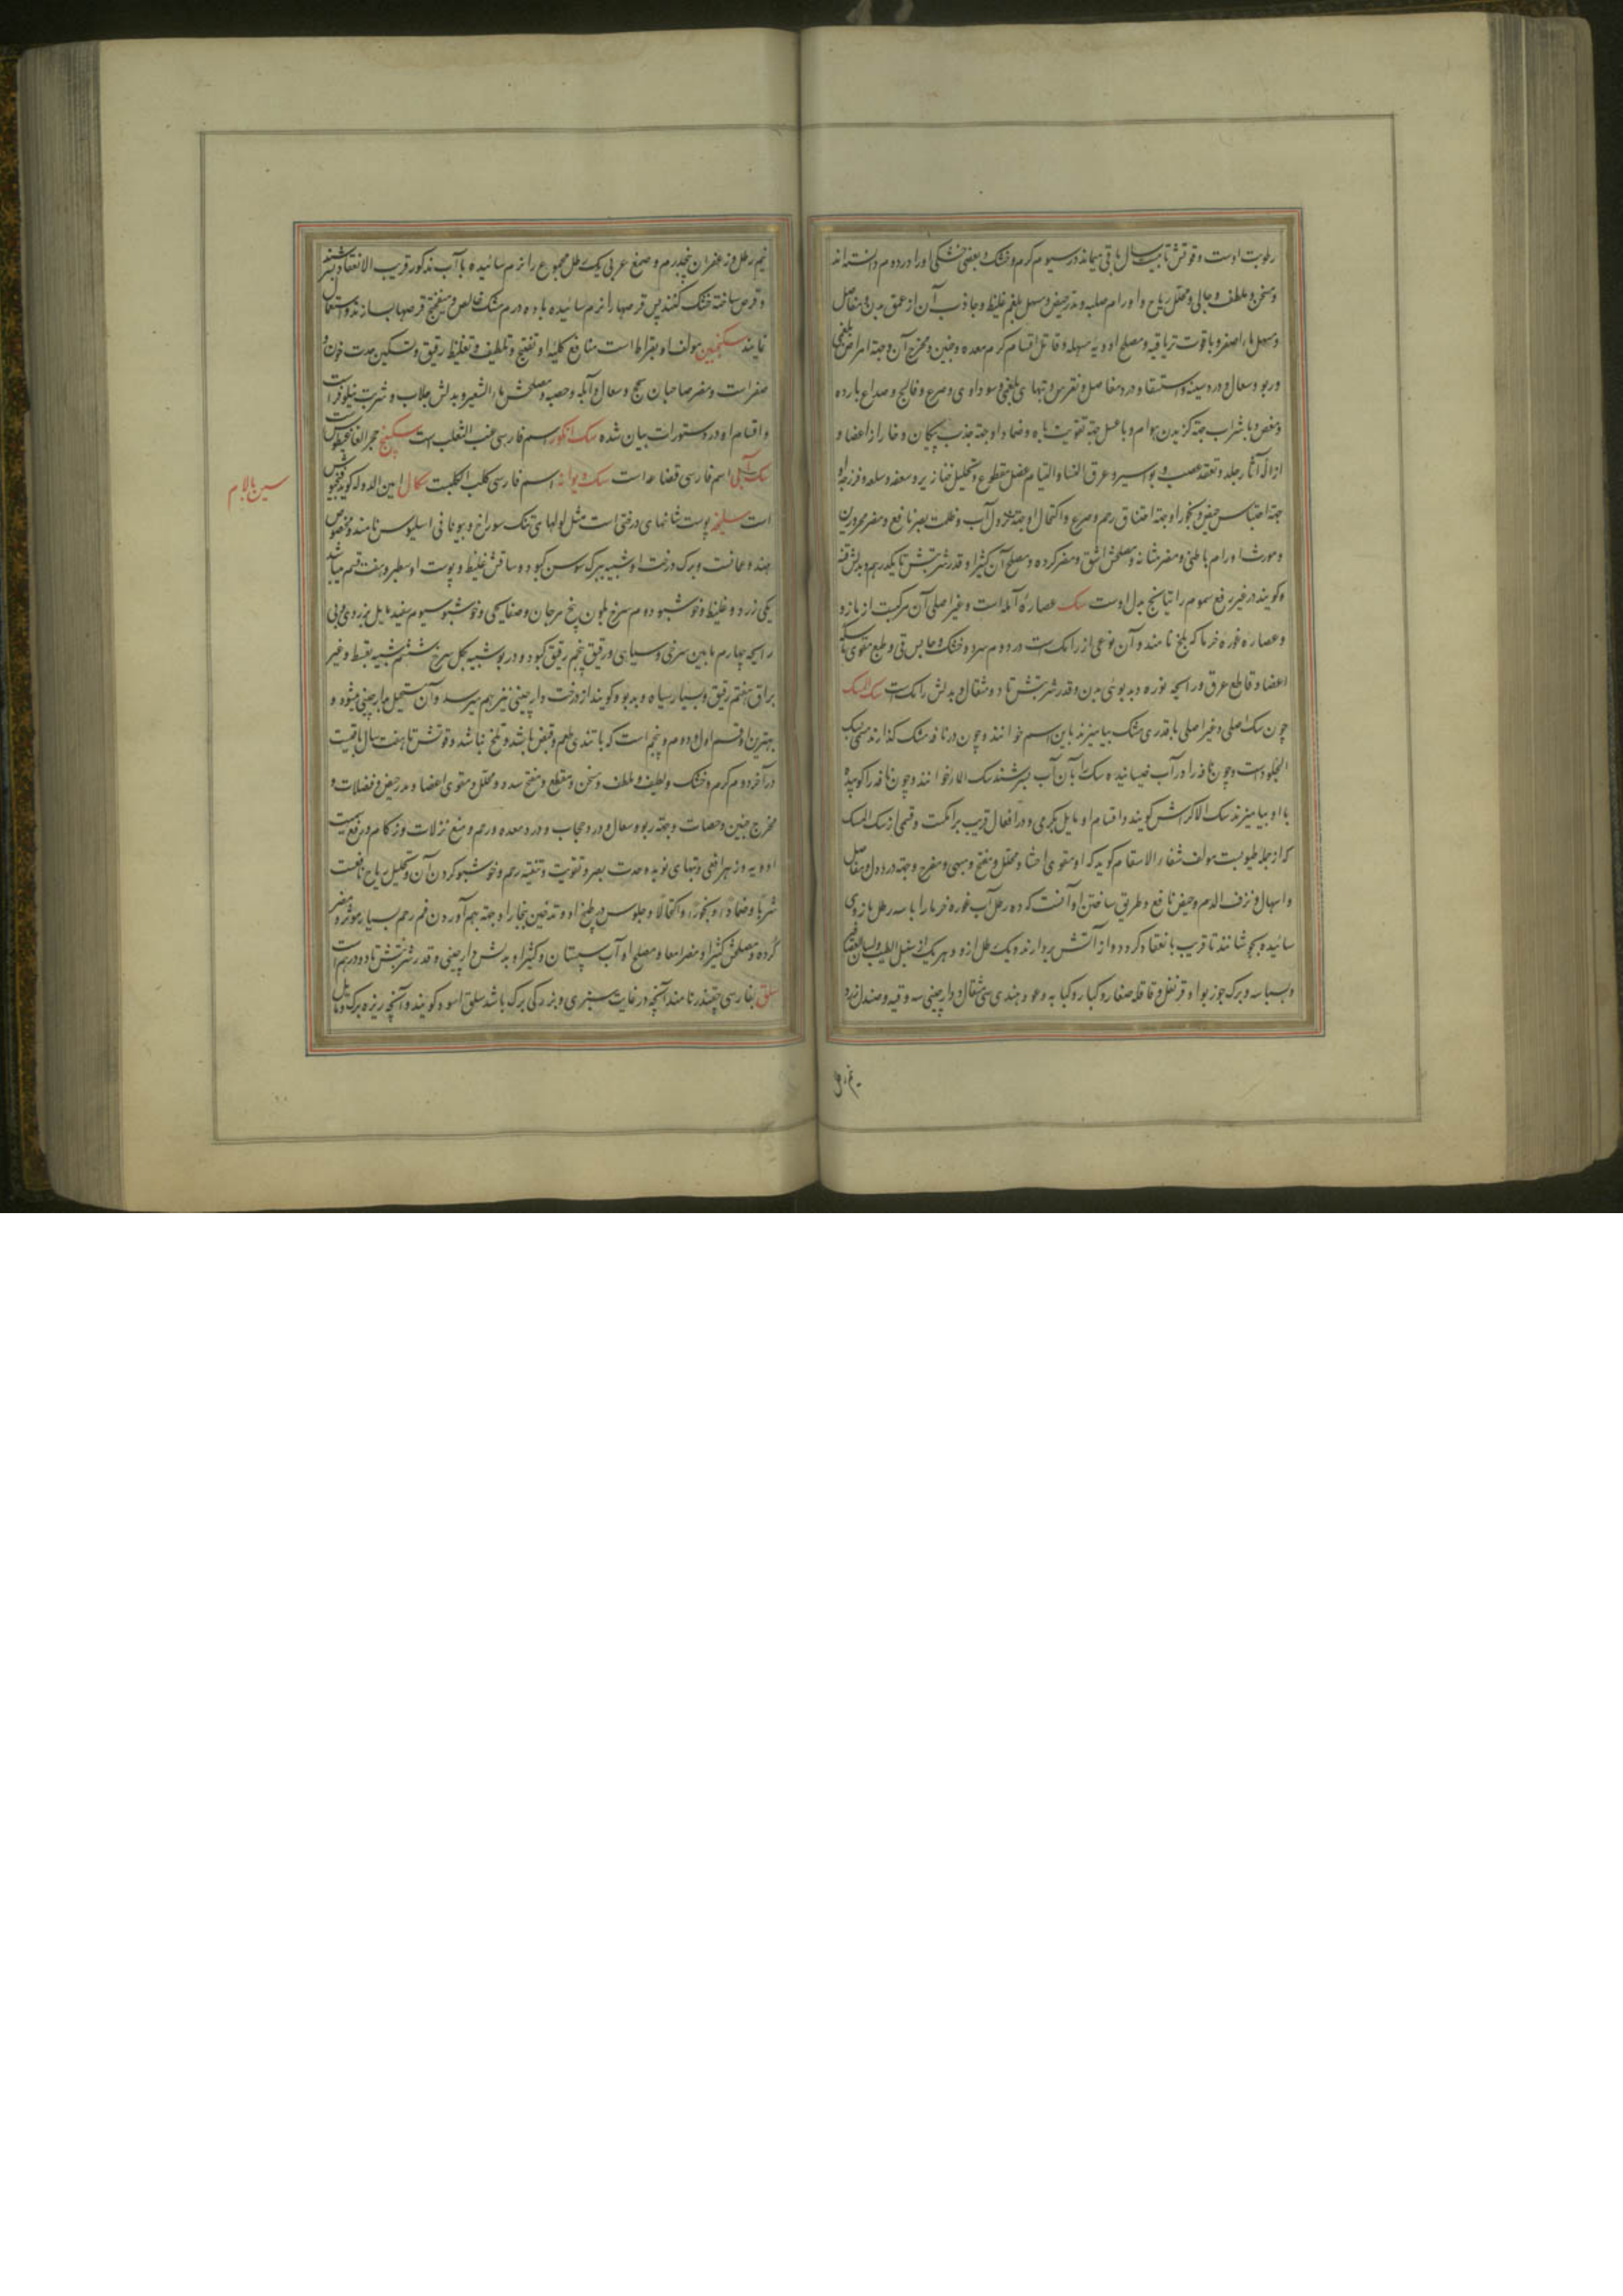 رطوبت اوست و قوتش تا بیست سال باقی میماند در سیوم گرم و خشک و بعضی خشکی او را در دوم دانسته‌اند
و مسخن و ملطف و جالی و محلل ریاح و اورام صلبه و مدر حیض و مسهل بلغم غلیظ و جاذب آن از عمق بدن و مفاصل
و مسهل ماء اصفر و با قوت تریاقیه و مصلح ادویهٔ مسهله و قاتل اقسام کرم معده و جنین و مخرج آن و جهة امراض بلغمی
و ربو و سعال و درد سینه و استسقا و درد مفاصل و نقرس و تبهای بلغمی و سوداوی و صرع و فالج و صداع بارده
و مغص و با شراب جهة گزیدن هوام و با عسل جهة تقویت باه و ضماد او جهة جذب پیکان و خار از اعضا و
ازالهٔ آثار جلد و تعقد عصب و بواسیر و عرق النسا و التیام عضل مقطوع و تحلیل خنازیر و سعفه و سلعه و فرزجهٔ او
جهة احتباس حیض و بخور او جهة اختناق رحم و صرع و اکتحال او جهة نزول آب و ظلمت بصر نافع و مضر محرورین
و مورث اورام باطنی و مضر مثانه و مصلحش اشق و مضر گرده و مصلح آن کثیرا و قدر شربتش تا یکدرهم و بدلش قنه
و گویند در غیر رفع سموم راتیانج بدل اوست سک عصارهٔ آمله است و غیر اصلی آن مرکبست از مازو
و عصاره غوره خرما که بلح نامند و آن نوعی از رامک است در دوم سرد و خشک و حابس قی و طبع و مقوی
اعضا و قاطع عرق و رایحه نوره و بدبوئی بدن و قدر شربتش تا دو مثقال و بدلش رامک است سک المسک
چون سک اصلی و غیر اصلی با قدری مشک بیامیزند باین اسم خوانند و چون در نافه مشک گذارند مسمی بسک
الجلود است و چون نافه را در آب خیسانیده سک را بآن آب بسرشند سک الماء خوانند و چون نافه را کوبیده
با او بیامیزند سک الاکراش گویند و اقسام او مایل بگرمی و در افعال قریب برامکست و قسمی از سک المسک
که از جمله طیوبست مولف شفاء الاسقام گوید که او مقوی احشا و محلل و مفتح و مبهی و مفرح و جهة درد دل و مفاصل
و اسهال و نزف الدم و حیض نافع و طریق ساختن او آنست که ده رطل آب غوره خرما را با سه رطل مازوی
سائیده بجوشانند تا قریب بانعقاد گردد و از آتش بردارند و یک رطل ازو و هر یک از سنبل الطیب و لسان العصافیر
و بسباسه و برگ جوز بوا و قرنفل و قاقله صغار و کبار و کبابه و عود هندی سی مثقال و دارچینی سه وقیه و صندل زرد
نیم رطل و زعفران پنجدرم و صمغ عربی یک رطل مجموع را نرم سائیده با آب مذکور قریب الانعقاد بسرشند
و قرص ساخته خشک کنند پس قرصها را نرم سائیده با ده درم مشک خالص و میفختج قرصها بسازند و استعمال
نمایند سکنجبین مولف او بقراط است منافع کلیه او تفتیح و تلطیف و تغلیظ رقیق و تسکین حدت خون و
صفراست و مضر صاحبان سحج و سعال و آبله و حصبه و مصلحش ماء الشعیر و بدلش جلاب و شربت نیلوفر است
و اقسام او در دستورات بیان شده سک انکور اسم فارسی عنب الثعلب است سکبینج حجر الغاغیطوس است
سک آبی اسم فارسی قضاعه است سک دیوانه اسم فارسی کلب الکلبست سکال امین الدوله گوید فنجیوش
است سلیخه پوست شاخهای درختی است مثل لولهای تنک سوراخ و بیونانی اسلیوس نامند و مخصوص
هند و عمانست و برگ درخت او شبیه ببرگ سوسن کبود و ساقش غلیظ و پوست او سطبر و هفت قسم میباشد
یکی زرد و غلیظ و خوشبو دوم سرخ بلون بیخ مرجان و صفایحی و خوشبو سیوم سفید مایل بزردی و بی
رایحه چهارم مابین سرخی و سیاهی و رقیق پنجم رقیق کبود و در بو شبیه بگل سرخ ششم شبیه بقسط و غیر
براق هفتم رقیق و بسیار سیاه و بدبو و گویند از درخت دارچینی نیز بهم میرسد و آن مستحیل بدارچینی میشود و
بهترین او قسم اول و دوم و پنجم است که با تندی طعم و قبض باشد و تلخ نباشد و قوتش تا هفت سال باقیست
در آخر دوم گرم و خشک و لطیف و ملطف و مسخن و مقطع و مفتح سدد و محلل و مقوی اعضا و مدر حیض و فضلات و
مخرج جنین و حصات و جهة ربو و سعال و درد حجاب و درد معده و رحم و منع نزلات و زکام و رفع سمیت
ادویه و زهر افعی و تبهای نوبه و حدت بصر و تقویت و تنقیه رحم و خوشبو کردن آن و تحلیل ریاح نافعست
شربا و ضمادا و بخورا و اکتحالا و جلوس در طبیخ او و تدخین ببخار او جهة بهم آوردن فم رحم بسیار موثر و مضر
گرده و مصلحش کثیرا و مضر امعا و مصلح او آب سپستان و کثیرا و بدلش دارچینی و قدر شربتش تا دو درهم است
سلق بفارسی چغندر نامند آنچه در غایت سبزی و بزرگی برگ باشد سلق اسود گویند و آنچه ریزه برگ و مایل
سین با لام